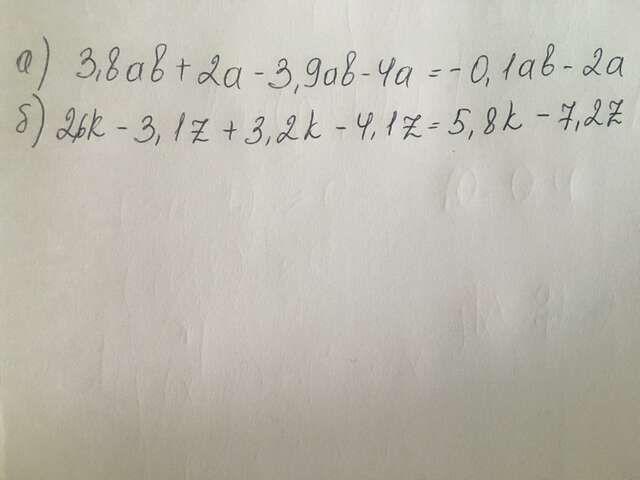 а) 3,8ab + 2a - 3,9ab - 4a = - 0,1ab - 2a
б) 2,6k - 3,1z + 3,2k - 4,1z = 5,8k - 7,2z